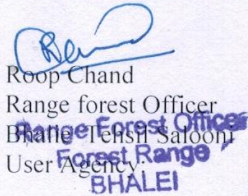 Roop Chand
Range forest Officer
Bhalie Tehsil Salooni
User Agency
Range Forest Officer
Forest Range
BHALEI